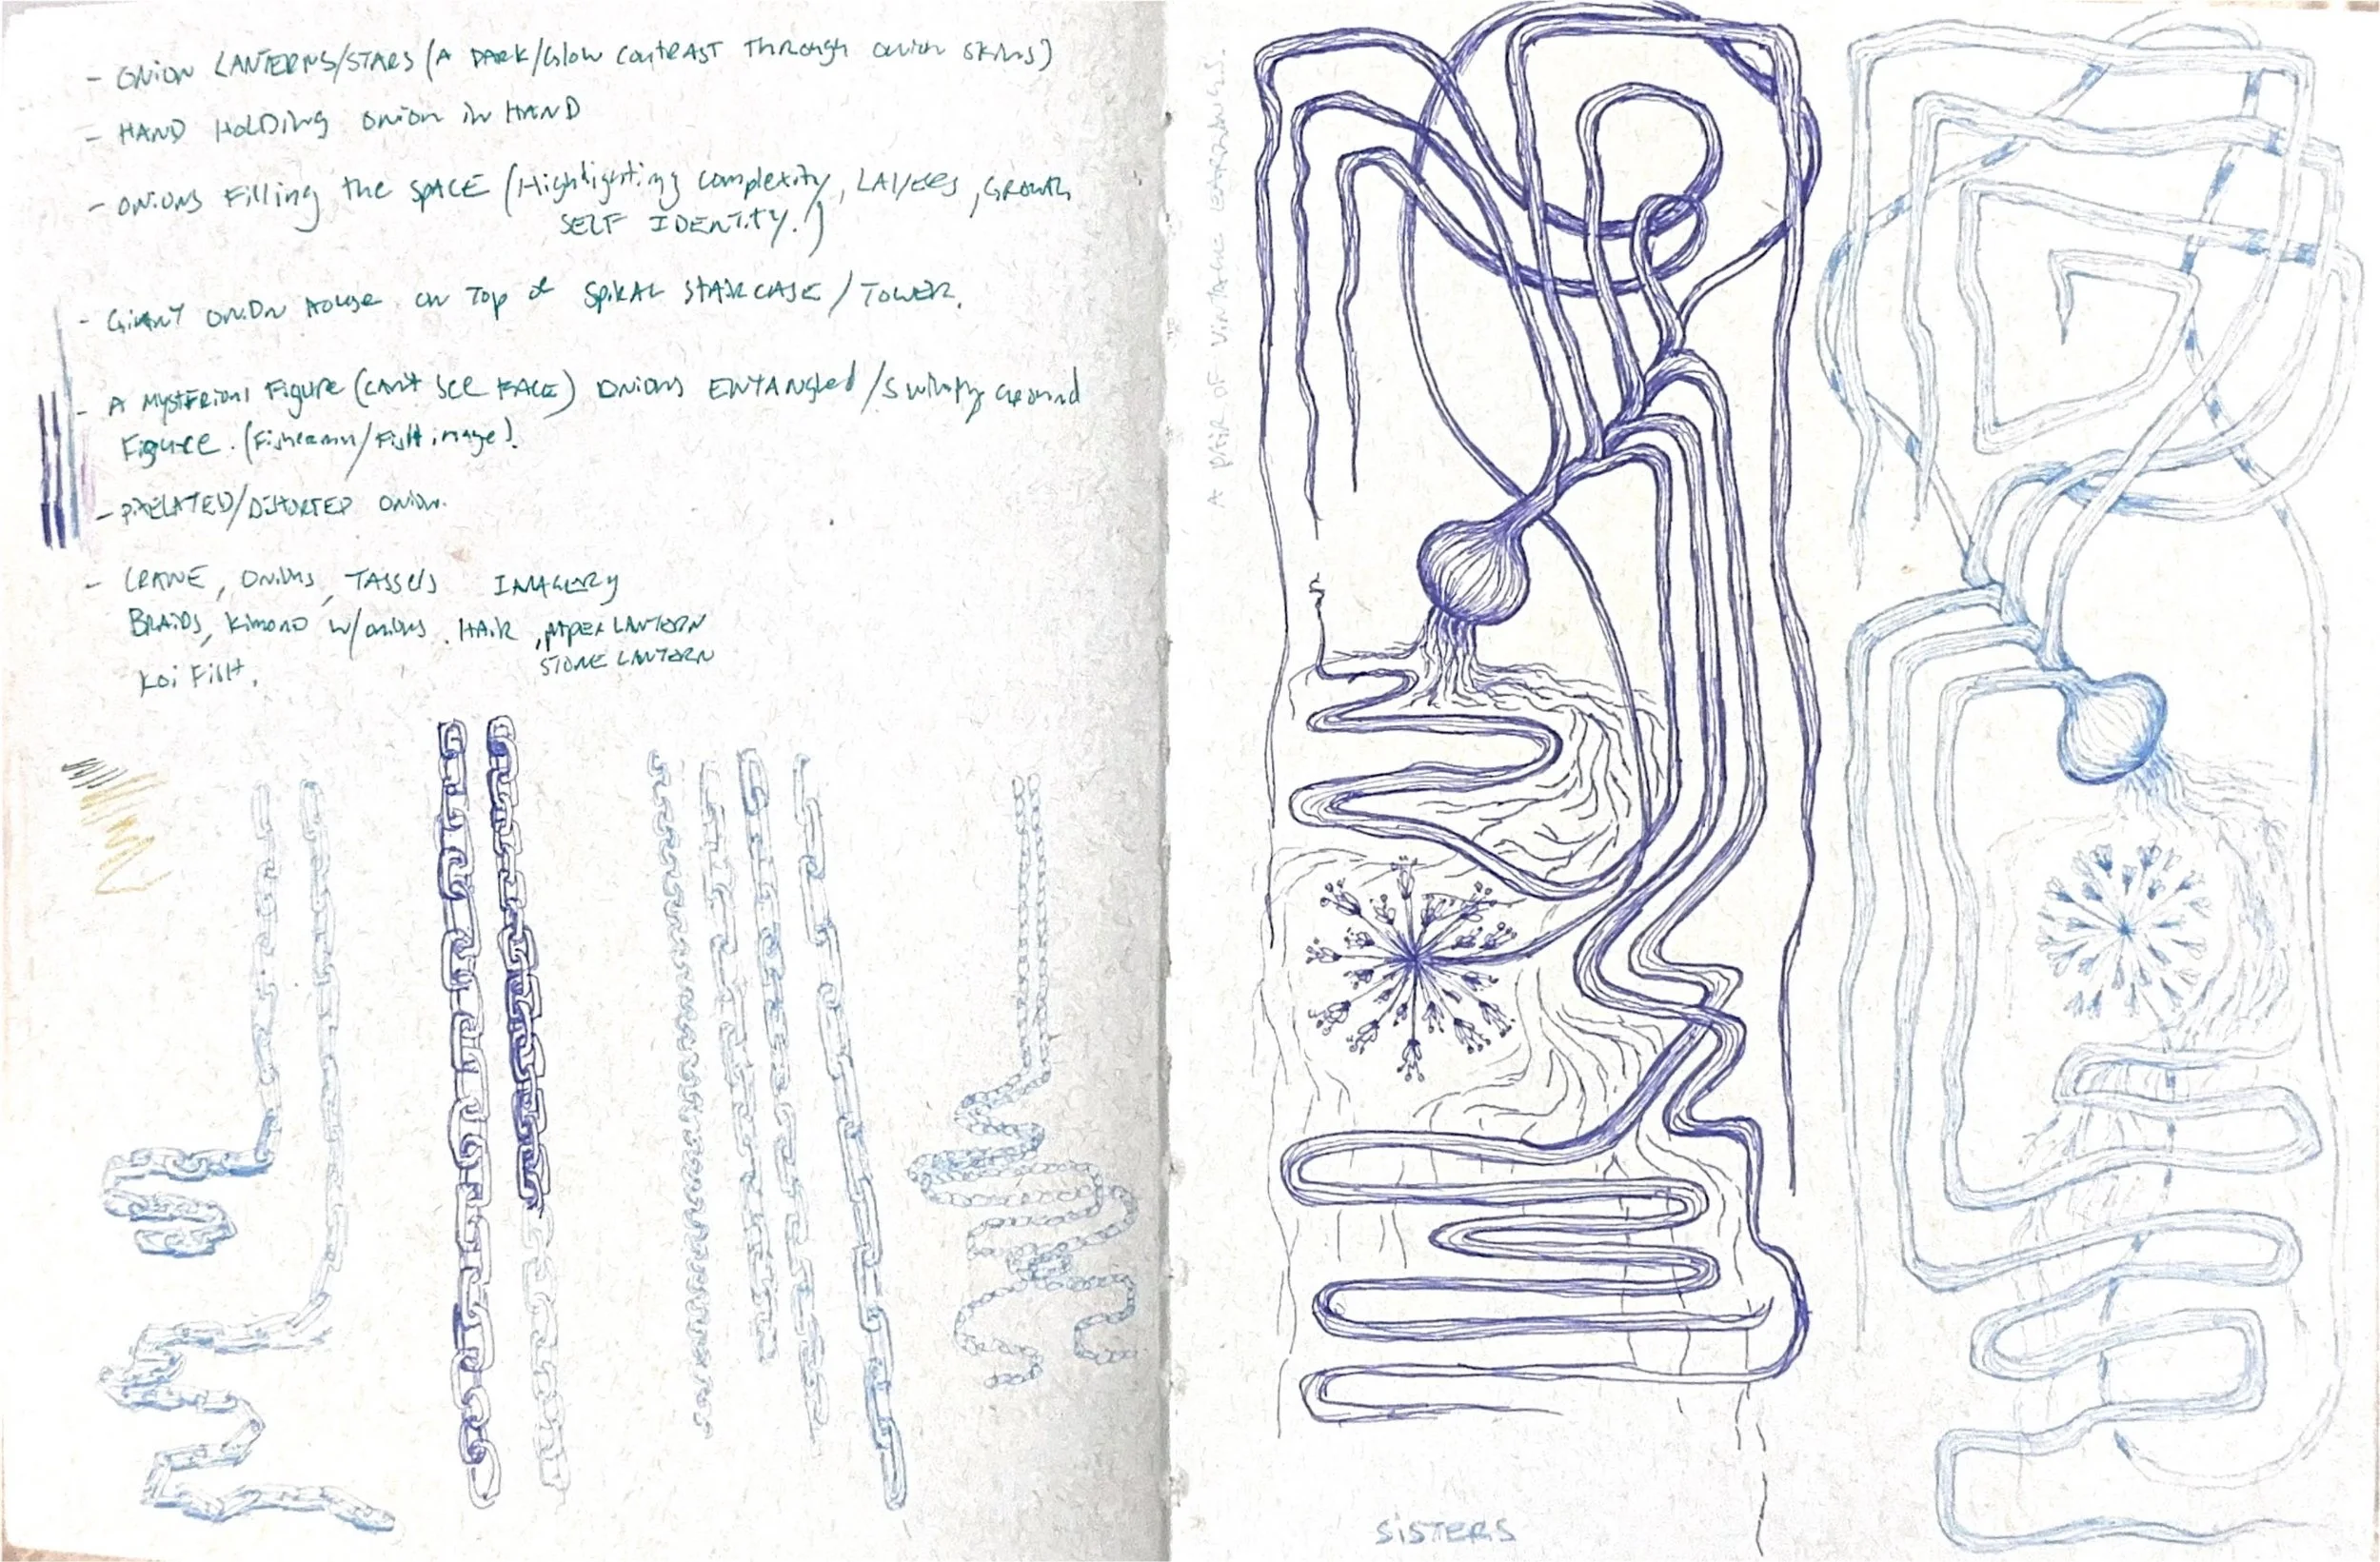 - ONION LANTERNS/STARS (A DARK/Glow CONTRAST THROUGH ONION SKINS)
- HAND HOLDING ONION IN HAND
- ONIONS FILLING THE SPACE (Highlighting complexity, LAYERS, GROWTH
SELF IDENTITY.)
- GIANT ONION HOUSE ON TOP OF SPIRAL STAIRCASE/TOWER.
- A MYSTERIOUS FIGURE (CAN'T SEE FACE) ONIONS ENTANGLED/SWIMMING AROUND
FIGURE. (FISHERMAN/FISH image).
- PIXELATED/DISTORTED ONION.
- CRANE, ONIONS, TASSELS IMAGERY
BRAIDS, KIMONO W/ONIONS. HAIR, PAPER LANTERN
STONE LANTERN
KOI FISH.
A PAIR OF VINTAGE EARRINGS.
SISTERS